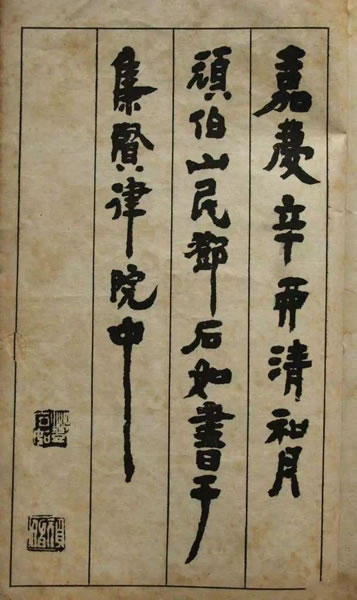 嘉慶辛酉清和月
頑伯山民鄧石如書于
集賢律院中
鄧石如
頑伯